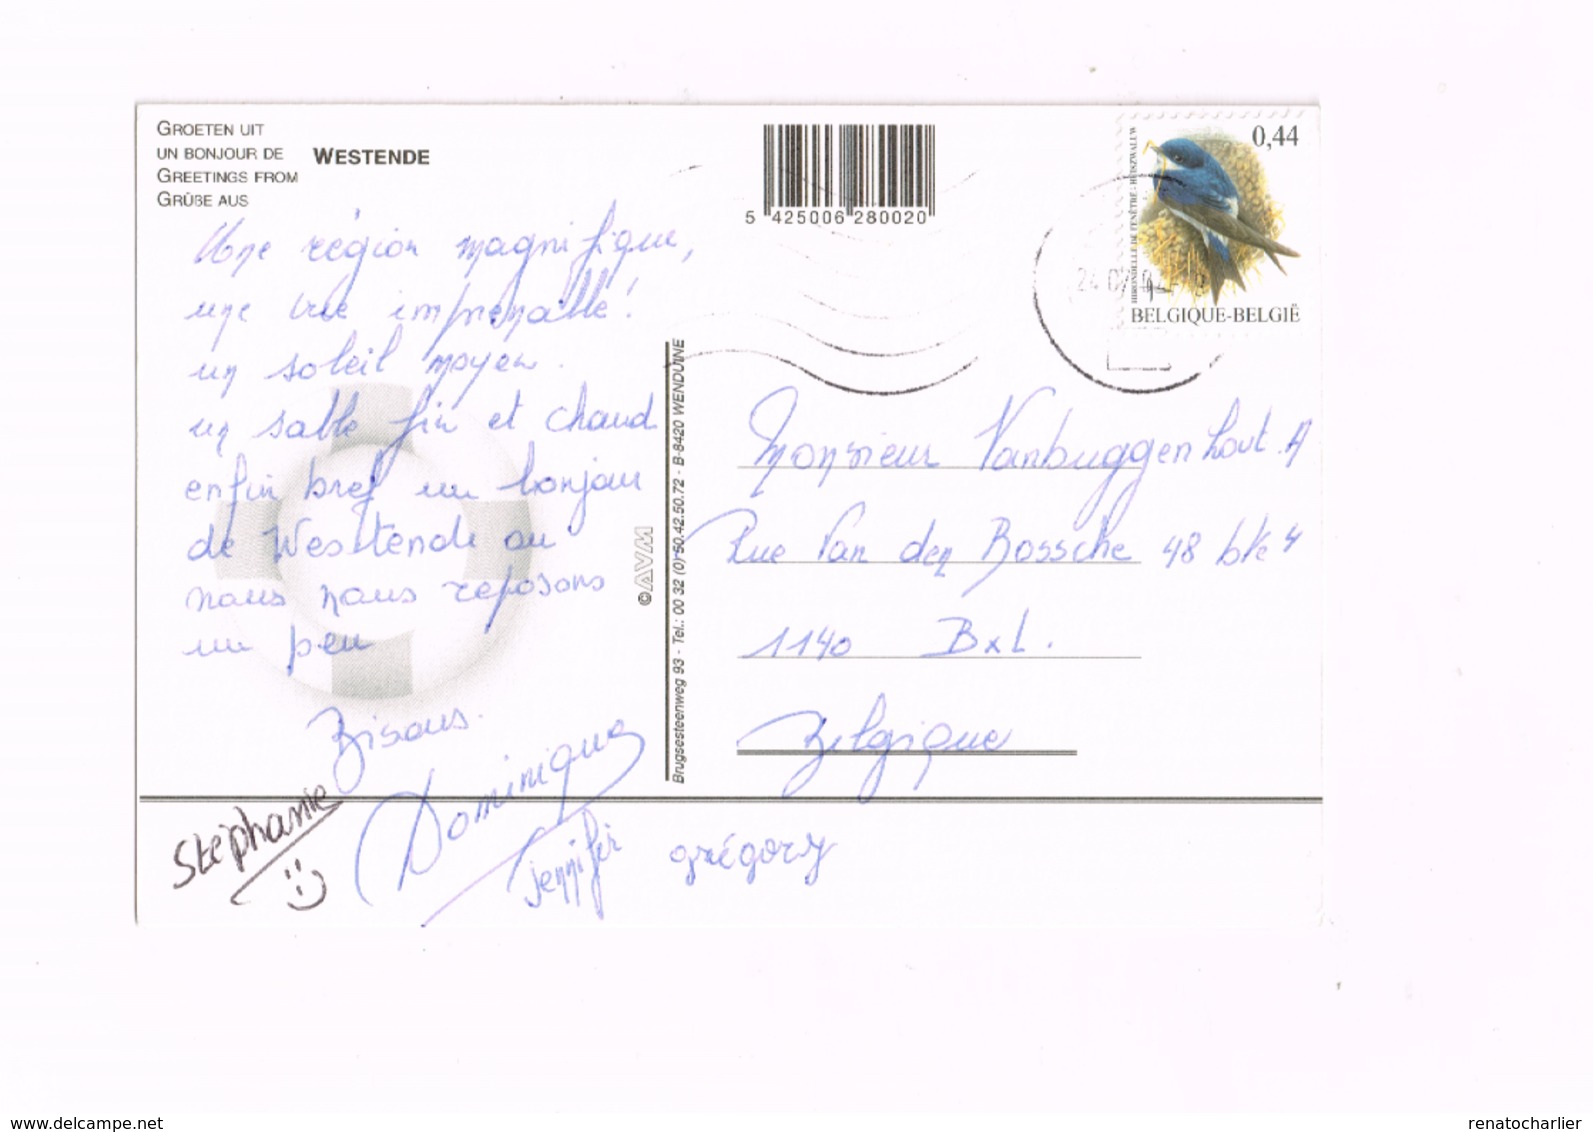 GROETEN UIT
UN BONJOUR DE
WESTENDE
GREETINGS FROM
GRÜßE AUS
Une région magnifique,
une vue imprenable!
un soleil moyen.
un sable fin et chaud
enfin bref un bonjour
de Westende ou
nous nous reposons
un peu
Bisous.
Stéphanie
Dominique
Jennifer
grégory
5 425006 280020
0,44
HIRONDELLE DE FENÊTRE - HUISZWALUW
BELGIQUE-BELGIË
©AVM
Brugsesteenweg 93 - Tel.: 00 32 (0) 50.42.50.72 - B-8420 WENDUINE
Monsieur Vanbuggenhout.A
Rue Van den Bossche 48 bte 4
1140 BxL.
Belgique
www.delcampe.net
renatocharlier